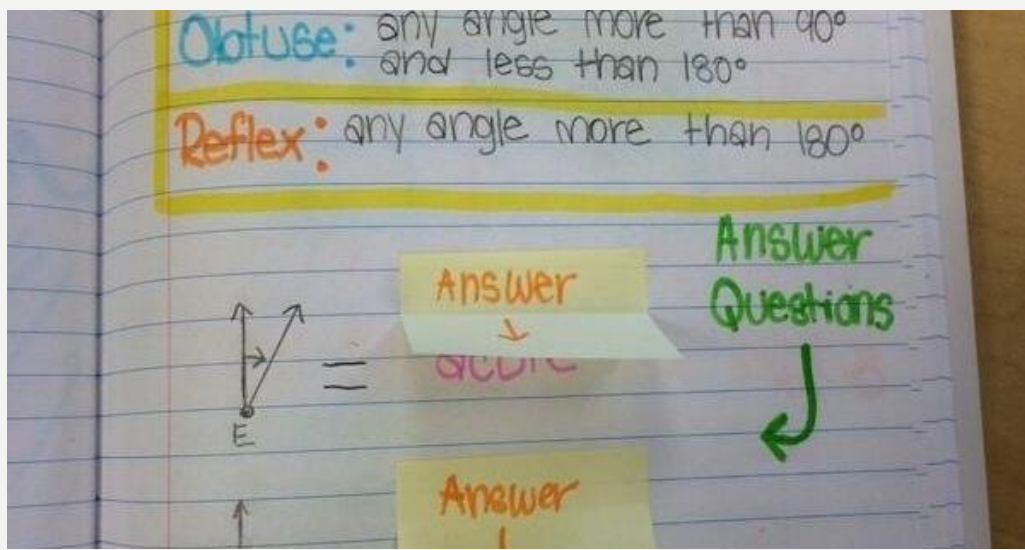 Obtuse: any angle more than 90°
and less than 180°
Reflex: any angle more than 180°
Answer
Questions
Answer
acute
=
E
Answer